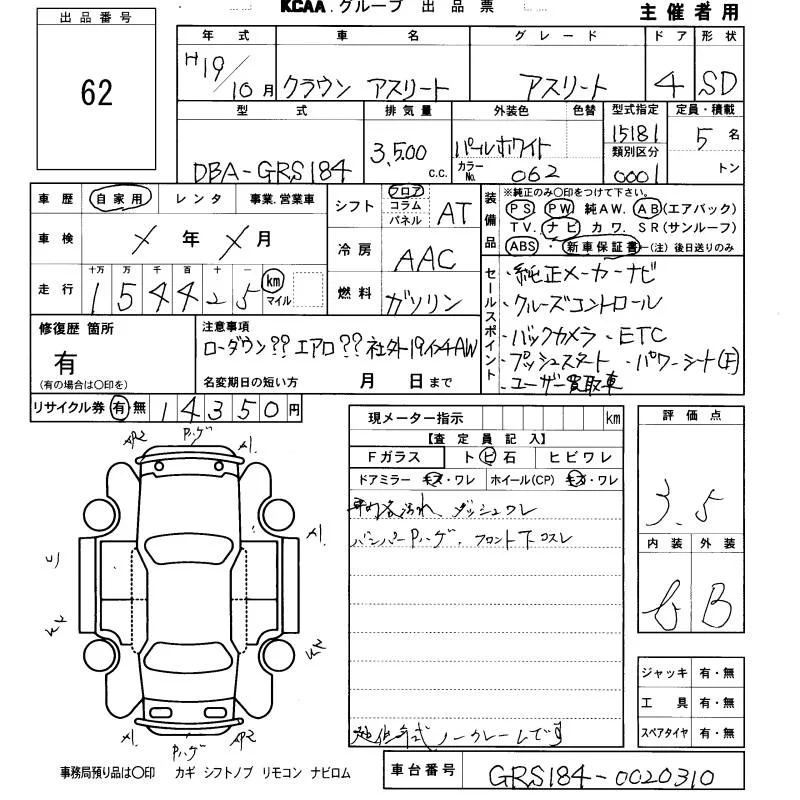 KCAA.グループ 出品票
主催者用
出品番号
62
年式 車名 グレード ドア 形状
H19/10月 クラウン アスリート アスリート 4 SD
型式 排気量 外装色 色替 型式指定 定員・積載
DBA-GRS184 3,500 c.c. パールホワイト 15181 5名
カラーNo. 062 類別区分 0001 トン
車歴 自家用 レンタ 事業.営業車
車検 メ年メ月
走行 十万 万 千 百 十 一
154425 km マイル
シフト フロア コラム パネル AT
冷房 AAC
燃料 ガソリン
装備品
※純正のみ〇印をつけて下さい。
PS・PW・純AW.AB(エアバック)
TV.ナビ・カワ.SR(サンルーフ)
ABS・新車保証書―(注)後日送りのみ
セールスポイント
・純正メーカーナビ
・クルーズコントロール
・バックカメラ・ETC
・プッシュスタート・パワーシート(F)
・ユーザー買取車
修復歴 箇所
有
(有の場合は〇印を)
注意事項
ローダウン?? エアロ?? 社外19インチAW
名変期日の短い方 月 日まで
リサイクル券 有 無 14350円
現メーター指示 km
【査定員記入】
Fガラス トビ石 ヒビワレ
ドアミラー キズ・ワレ ホイール(CP) キズ・ワレ
ダッシュワレ
バンパーPハゲ.フロント下コスレ
ノークレームです
評価点
3.5
内装 外装
B
ジャッキ 有・無
工具 有・無
スペアタイヤ 有・無
Pハゲ
Pハゲ
事務局預り品は〇印 カギ シフトノブ リモコン ナビロム
車台番号 GRS184-0020310